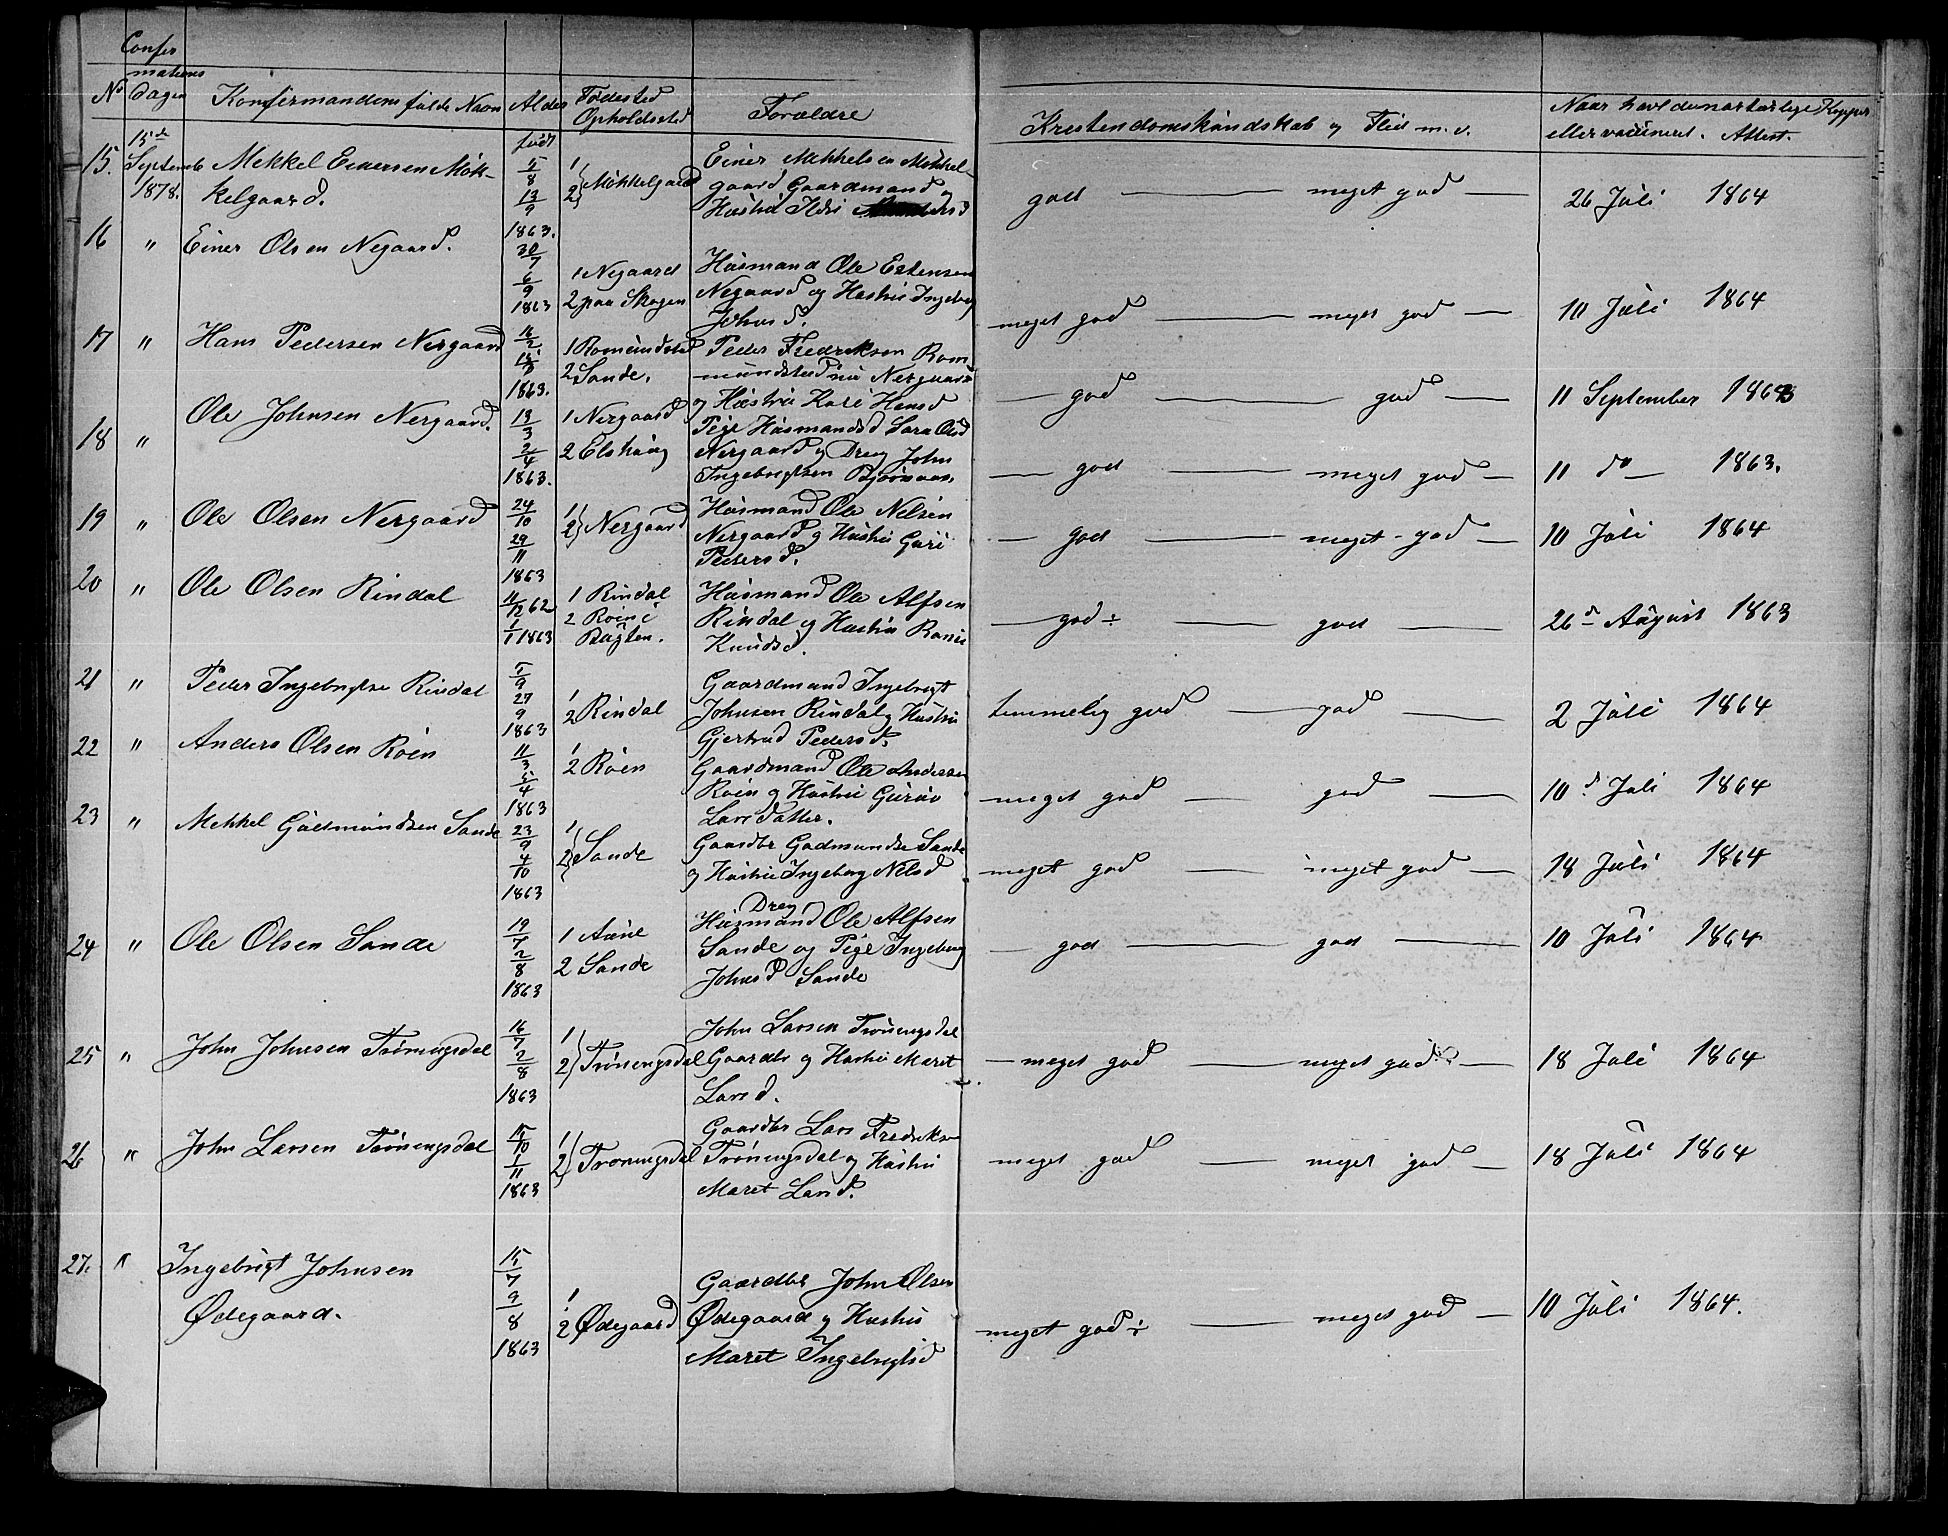 Confir
mations
No dagen Konfirmandens fulde Navn Alder Fødested Opholdssted Forældre Kristendomskundskab og Flid m. v. Naar havt de naturlige Kopper eller vaccineret. Attest.
født
15. 15de Septemb 1878. Mekkel Einersen Møk-
kelgaard.
5/8 13/9 1863.
1 2 } Møkkelgaard
Einer Mekkelsen Møkkel-
gaard Gaardmand og
Hustru Ildri
god — meget god — 26 Juli 1864
16 " Einer Olsen Negaard.
30/7 6/9 1863
1 Negaard
2 paa Skogen
Husmand Ole Estensen
Negaard og Hustru Ingebor
Johnsd.
meget god — meget god — 10 Juli 1864
17 " Hans Pedersen Nergaard
1863.
1 Romundstad
2 Sande.
Peder Fredriksen Rom
mundstad nu Nergaard
og Hustru Kari Hansd
— god — god — 11 September 1863
18 " Ole Johnsen Nergaard.
13/3 2/4 1863.
1 Nergaard
2 Elshaug
Pige Husmandsd Sara Olsd
Nergaard og Dreng John
Ingebrigtsen Bjørnaas.
— god — meget god — 11 do — 1863.
19 " Ole Olsen Nergaard
24/10 29/11 1863
1 2 } Nergaard
Husmand Ole Nilsen
Nergaard og Hustru Guri
Pedersd.
— god — meget god — 10 Juli 1864
20 " Ole Olsen Rindal
11/12 62 1/1 1863
1 Rindal
2 Roen i
Bagten.
Husmand Ole Alfsen
Rindal og Hustru Ronni
Knudsd.
— god ÷ — god — 26de August 1863
21 " Peder Ingebrigtsen Rindal
5/9 27/9 1863
1
2 Rindal
Gaardmand Ingebrigt
Johnsen Rindal og Hustru
Gjertrud Pedersd.
temmelig god — god — 2 Juli 1864
22 " Anders Olsen Roen
11/3 5/4 1863
1
2 Roen
Gaardmand Ole Andersen
Roen og Hustru Guruv
Larsdatter.
meget god — god — 10d Juli 1864
23 " Mekkel Gudmundsen Sande
23/9 4/10 1863
1 2 } Sande
Gaardbr Gudmundse Sande
og Hustru Ingeborg Nilsd
meget god — meget god — 18 Juli 1864
24 " Ole Olsen Sande
19/7 2/8 1863
1 Aune
2 Sande
Dreng
Husmand Ole Alfsen
Sande og Pige Ingeborg
Johnsd Sande
— god — god — 10 Juli 1864
25 " John Johnsen Trøningsdal
16/7 2/8 1863
1 2 } Trøningsdal
John Larsen Trøningsdal
Gaardbr og Hustru Maret
Larsd.
— meget god — meget god — 18 Juli 1864
26 " John Larsen Trøningsdal
15/10 1/11 1863
1 2 } Trøningsdal
Gaardbr Lars Fredrikse
Trøningsdal og Hustru
Maret Larsd.
meget god — meget god — 18 Juli 1864
27. " Ingebrigt Johnsen
Ødegaard.
15/7 9/8 1863
1
2 Ødegaard
Gaardbr John Olsen
Ødegaard og Hustru
Maret Ingebrigtsd
meget god ÷ — meget god — 10 Juli 1864.